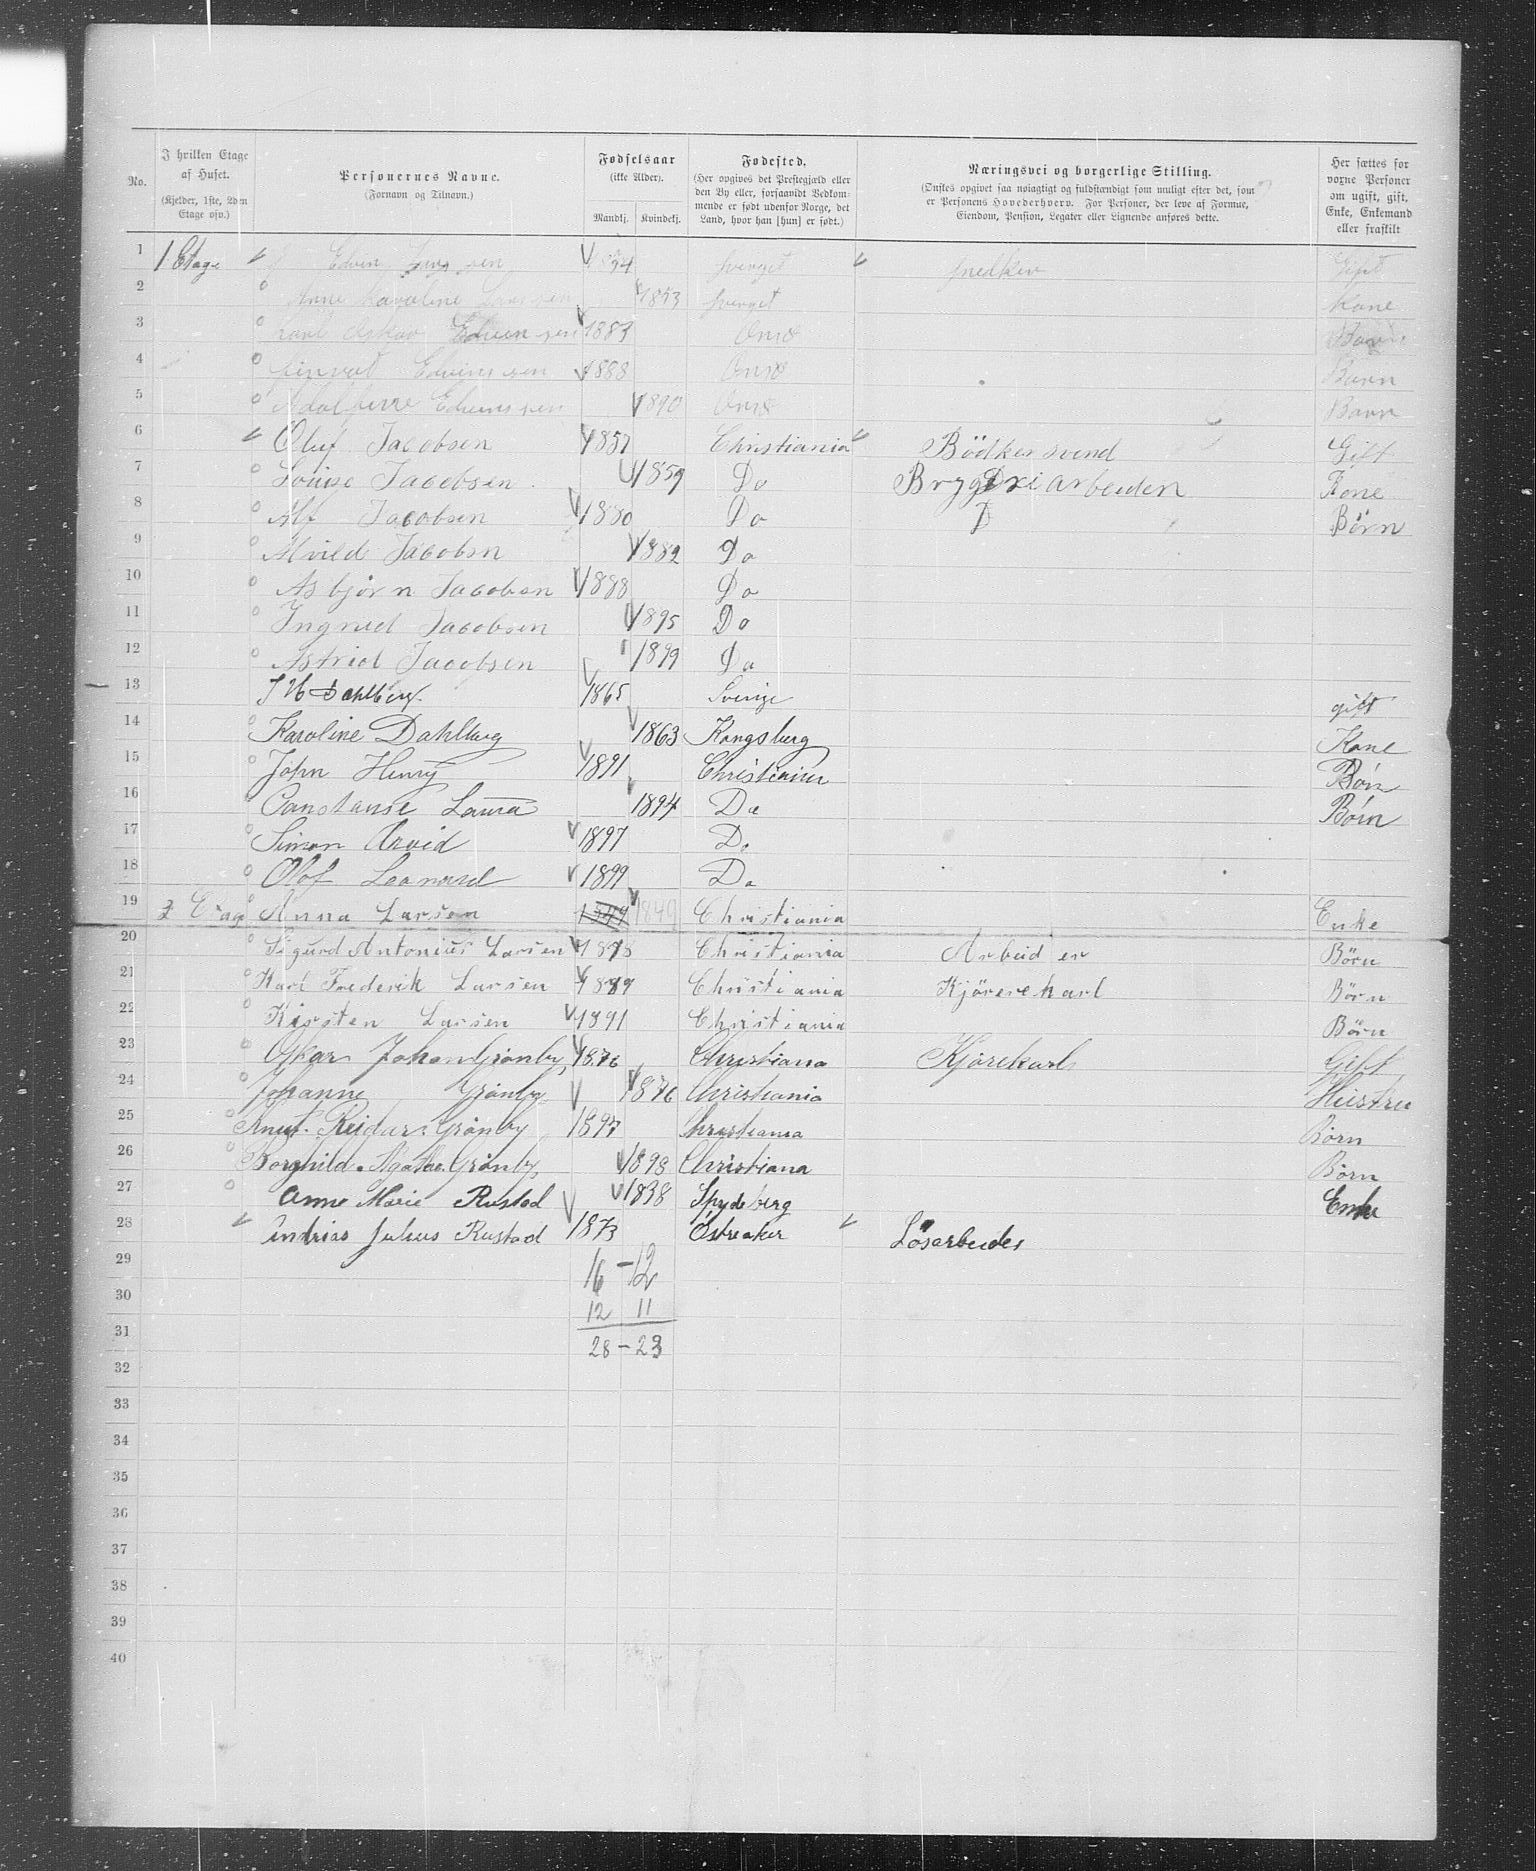 No.
I hvilken Etage af Huset. (Kjelder, 1ste, 2den Etage osv.)
Personernes Navne. (Fornavn og Tilnavn.)
Fødselsaar (ikke Alder). Mandkj. Kvindekj.
Fødested. (Her opgives det Prestegjæld eller den By eller, forsaavidt Vedkommende er født udenfor Norge, det Land, hvor han [hun] er født.)
Næringsvei og borgerlige Stilling. (Ønskes opgivet saa nøiagtigt og fuldstændigt som muligt efter det, som er Personens Hovederhverv. For Personer, der leve af Formue, Eiendom, Pension, Legater eller Lignende anføres dette.
Her sættes for voxne Personer om ugift, gift, Enke, Enkemand eller fraskilt
1 1 Etage Edvin Svergt snedker Gift
2 Anne Karoline Larssen 1853 Sverget Kone
3 Karl Oskar Edvinssen 1884 Onsø Barn
4 Edvinssen 1888 Onsø Barn
5 Edvinssen 1890 Onsø Barn
6 Oluf Jacobsen 1857 Christiania Bödkersvend Gift
7 Louise Jacobsen 1859 Do Bryggeriarbeiden Kone
8 Alf Jacobsen 1880 Do D Børn
9 Alvild Jacobsn 1882 Do
10 Asbjørn Jacobsen 1888 Do
11 Ingrid Jacobsen 1895 Do
12 Astrid Jacobsen 1899 Do
13 J H Dahlberg. 1865 Sverige gift
14 Karoline Dahlberg 1863 Kongsberg Kone
15 John Henry 1891 Christiania Børn
16 Constanse Laura 1894 Do Børn
17 Simon Arvid 1897 Do
18 Olof Leonard 1899 Do
19 2 Etag Anna Larsen 1849 1849 Christiania Enke
20 Sigurd Antonius Larsen 1878 Christiania Arbeider Børn
21 Karl Frederik Larsen 1889 Christiania Kjörerekarl Börn
22 Kirsten Larsen 1891 Christiania Börn
23 Oskar Johan Grønby 1876 Christiana Kjørekarl Gift
24 Johanne Grønby 1876 Christiania Hustru
25 Knut Reidar Grønby 1897 Christiania Børn
26 Borghild Agathe Grønby 1898 Christiana Børn
27 Anne Marie Rustad 1838 Spydeberg Enke
28 Andrias Julius Rustad 1873 Østreaker Løsarbeider
29 16 - 12
30 12 11
31 28 - 23
32
33
34
35
36
37
38
39
40